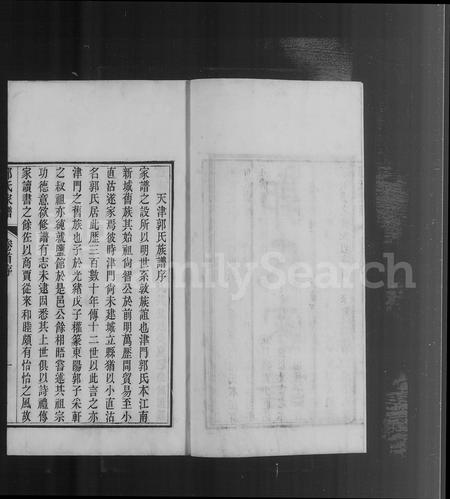 天津郭氏族譜序
家譜之設所以明世系敦族誼也津門郭氏本江南
新城舊族其始祖尚智公於前明萬歷間貿易至小
直沽遂家焉彼時津門尚未建城立縣猶以小直沽
名郭氏居此歷三百數十年傳十二世以此言之亦
津門之舊族也予於光緒戊子權篆東陽郭子采軒
之叔祖亦純就鹽館於是邑公餘相晤嘗述其祖宗
功德意欲修譜有志未逮因悉其上世俱以詩禮傳
家讀書之餘佐以商賈從來和睦頗有怡怡之風故
郭氏家譜 卷首序 一
FamilySearch